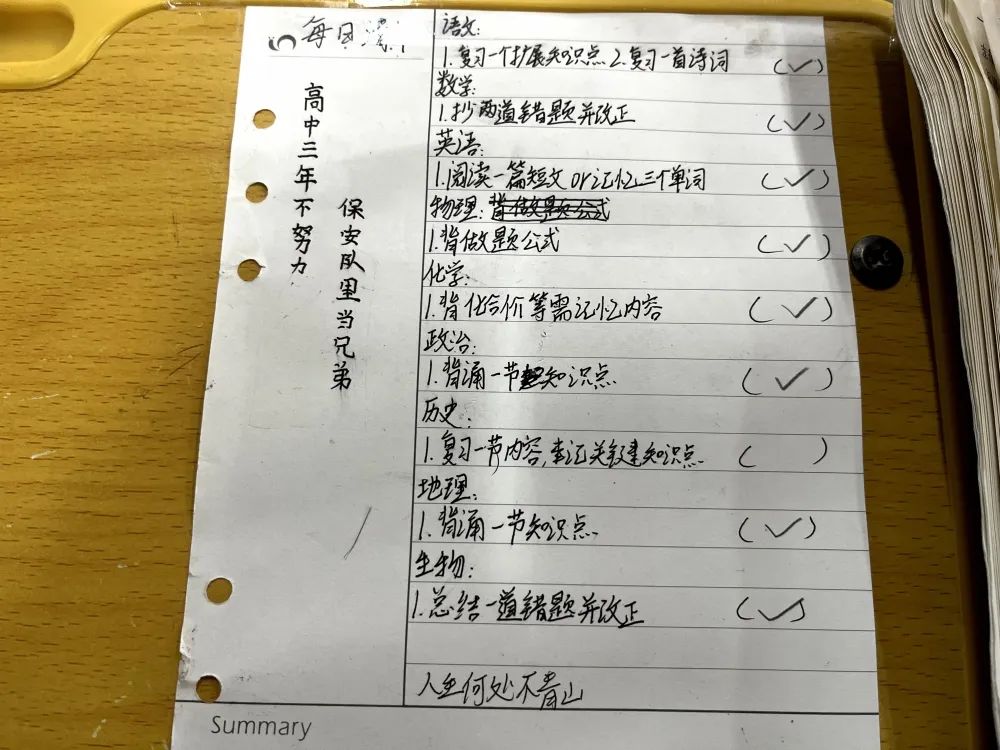 每日
高中三年不努力
保安队里当兄弟
语文:
1.复习一个扩展知识点 2.复习一首诗词 (✓)
数学:
1.抄两道错题并改正 (✓)
英语:
1.阅读一篇短文 or 记忆三个单词 (✓)
物理: 背做题公式
1.背做题公式 (✓)
化学:
1.背化合价等需记忆内容 (✓)
政治:
1.背诵一节知识点 (✓)
历史:
1.复习一节内容,牢记关键知识点 ( )
地理:
1.背诵一节知识点 (✓)
生物:
1.总结一道错题并改正 (✓)
人生何处不青山
Summary